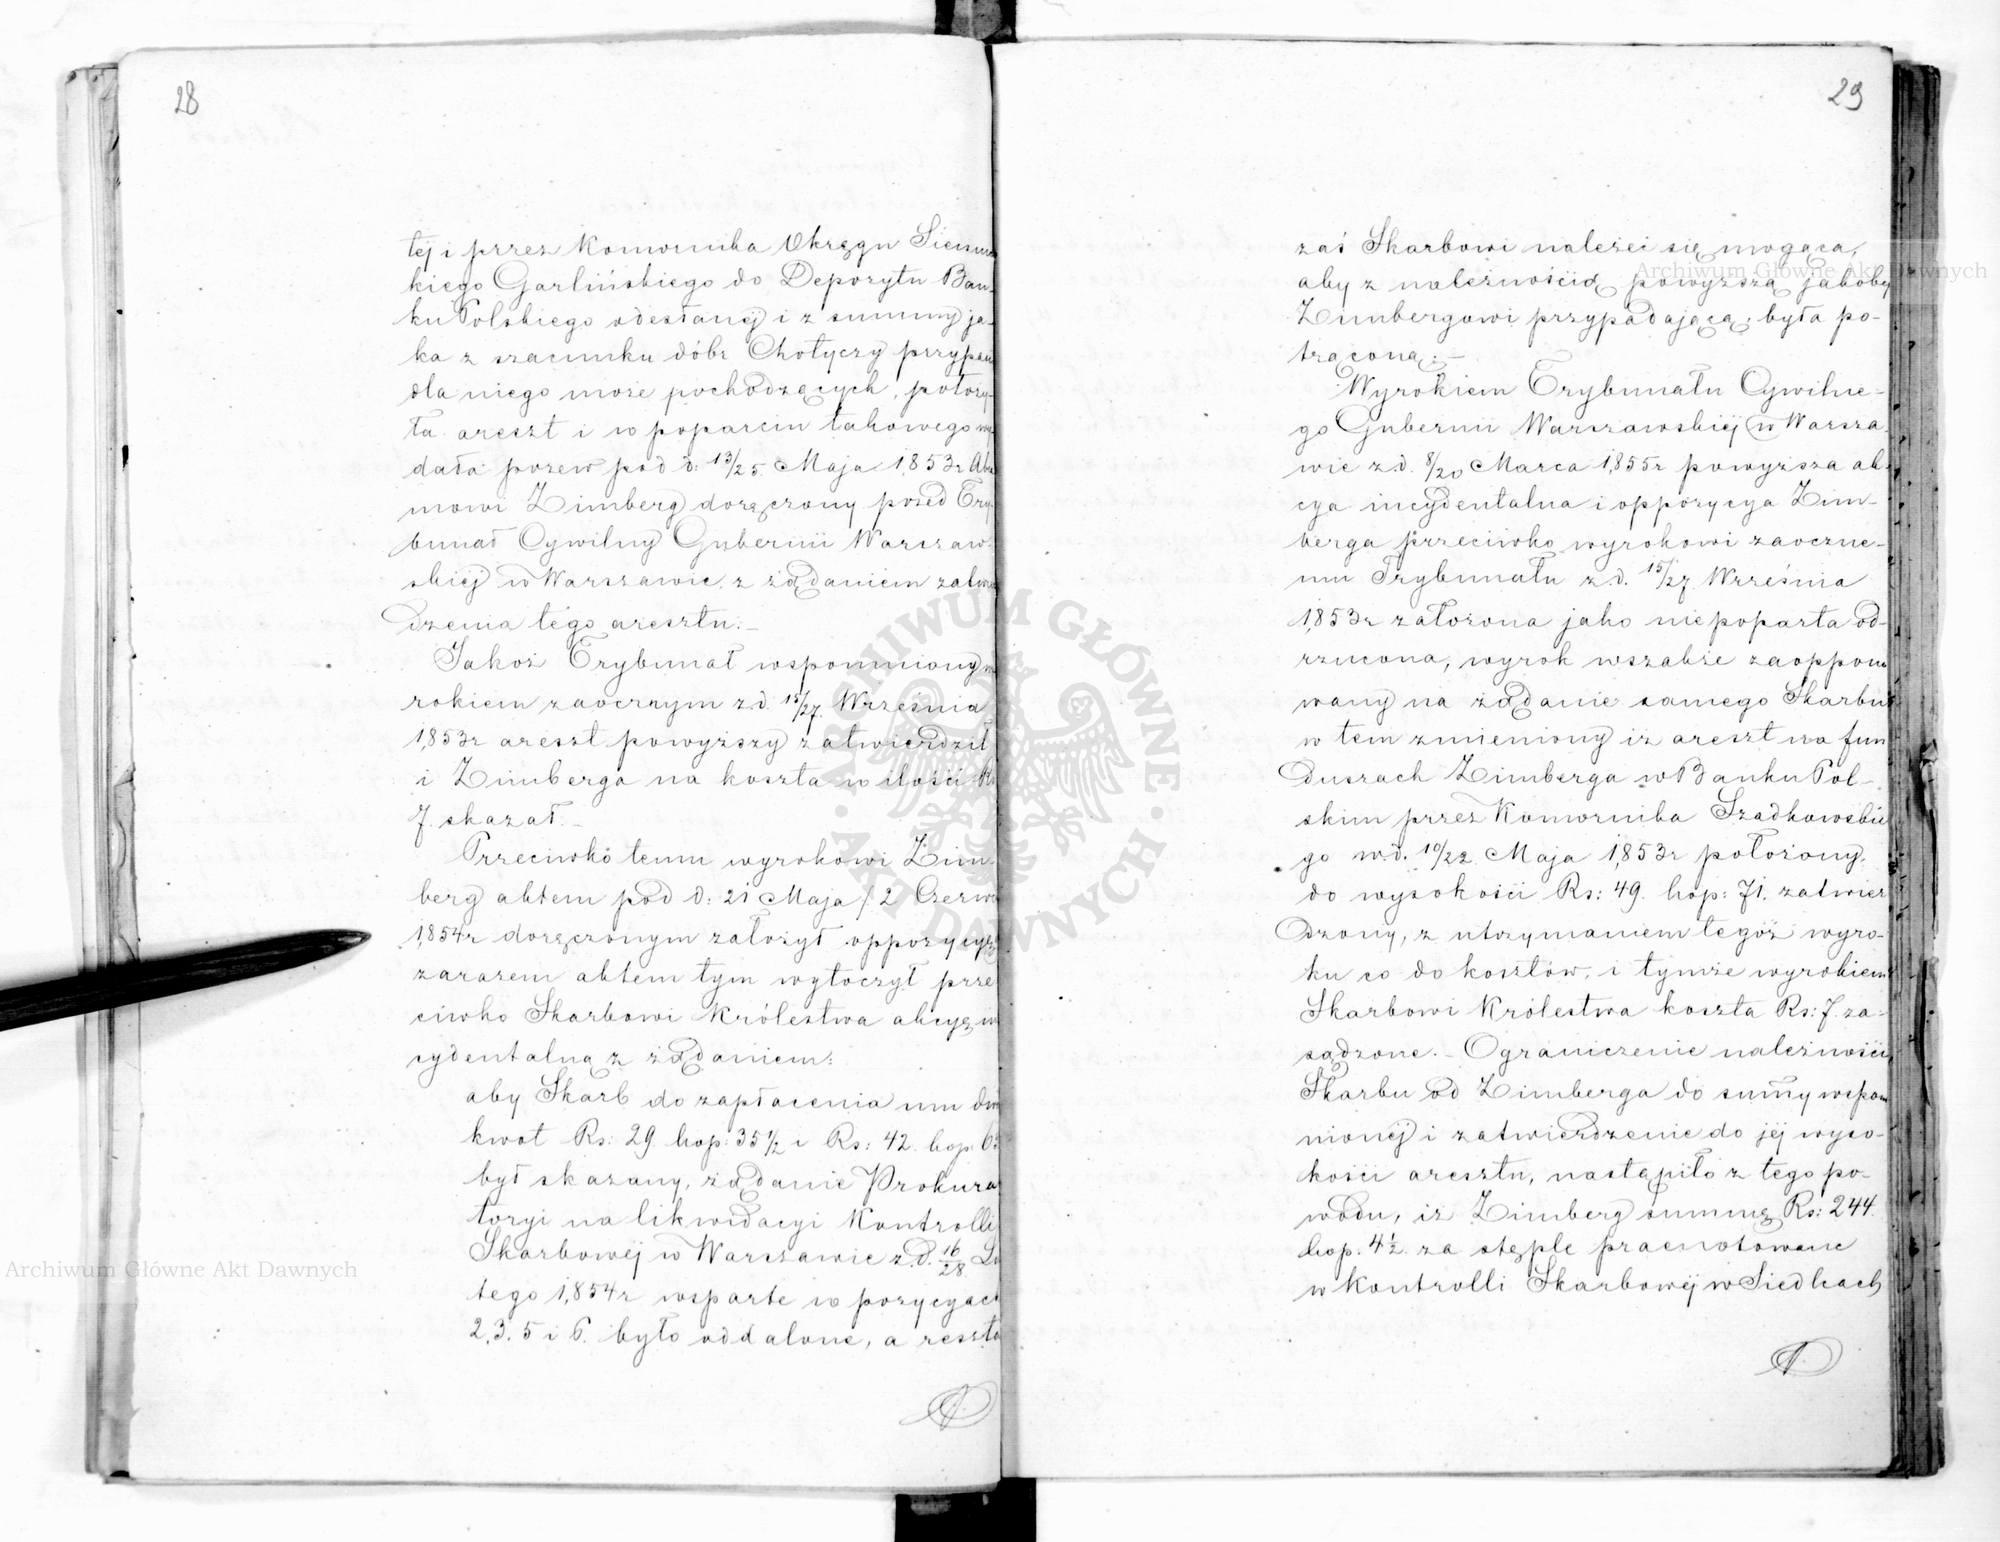 28
tej i przez Komornika Okręgu Sienni
kiego Garlińskiego do Depozytu Ban-
ku Polskiego odesłanej i z summy ja-
ka z szacunku dóbr Chotyczy przypaś
dla niego może pochodzących, położy-
ła areszt i w poparciu takowego wy
dała pozew pod d: 13/25. Maja 1853r Abra
mowi Zimberg doręczony przed Try-
bunał Cywilny Gubernii Warszaw-
skiej w Warszawie z żądaniem zatwier
dzenia tego aresztu.-
Jakoż Trybunał wspomniony wy
rokiem zaocznym z d. 15/27. Września
1853r areszt powyższy zatwierdził
i Zimberga na koszta w ilości Rs
7. skazał.-
Przeciwko temu wyrokowi Zim-
berg aktem pod d: 21 Maja / 2 Czerwca
1854r doręczonym założył oppozycyę
zarazem aktem tym wytoczył prze
ciwko Skarbowi Królestwa akcyę in
cydentalną z żądaniem:
aby Skarb do zapłacenia mu dwu
kwot Rs: 29. kop: 35 1/2 i Rs: 42. kop:
był skazany, żądanie Prokura
toryi na likwidacyi Kontrolli
Skarbowej w Warszawie z d. 16/28 Lu
tego 1854r wsparte w pozycyach
2, 3, 5 i 6. było oddalone, a reszta
29
zaś Skarbowi należeć się mogąca,
aby z należnością powyższą jakoby
Zimbergowi przypadającą, była po-
trąconą.-
Wyrokiem Trybunału Cywilne-
go Gubernii Warszawskiej w Warsza-
wie z d. 8/20 Marca 1855r powyższa ak-
cya incydentalna i oppozycya Zim-
berga przeciwko wyrokowi zaoczne-
mu Trybunału z d. 15/27. Września
1853r założona jako niepoparta od-
rzucona, wyrok wszakże zaoppono
wany na żądanie samego Skarbu
w tem zmieniony iż areszt na fun
duszach Zimberga w Banku Pol-
skim przez Komornika Szadkowskie
go w d. 10/22. Maja 1853r położony,
do wysokości Rs: 49. kop: 71. zatwier
dzony, z utrzymaniem tegoż wyro-
ku co do kosztów, i tymże wyrokiem
Skarbowi Królestwa koszta Rs: 7. za-
sądzone.- Ograniczenie należności
Skarbu od Zimberga do summy wspom
nionej i zatwierdzenie do jej wyso-
kości aresztu, nastąpiło z tego po-
wodu, iż Zimberg summę Rs: 244.
kop: 4 1/2. za stęple praenotowane
w Kontrolli Skarbowej w Siedlcach
Archiwum Główne Akt Dawnych
Archiwum Główne Akt Dawnych
ARCHIWUM GŁÓWNE · AKT DAWNYCH ·